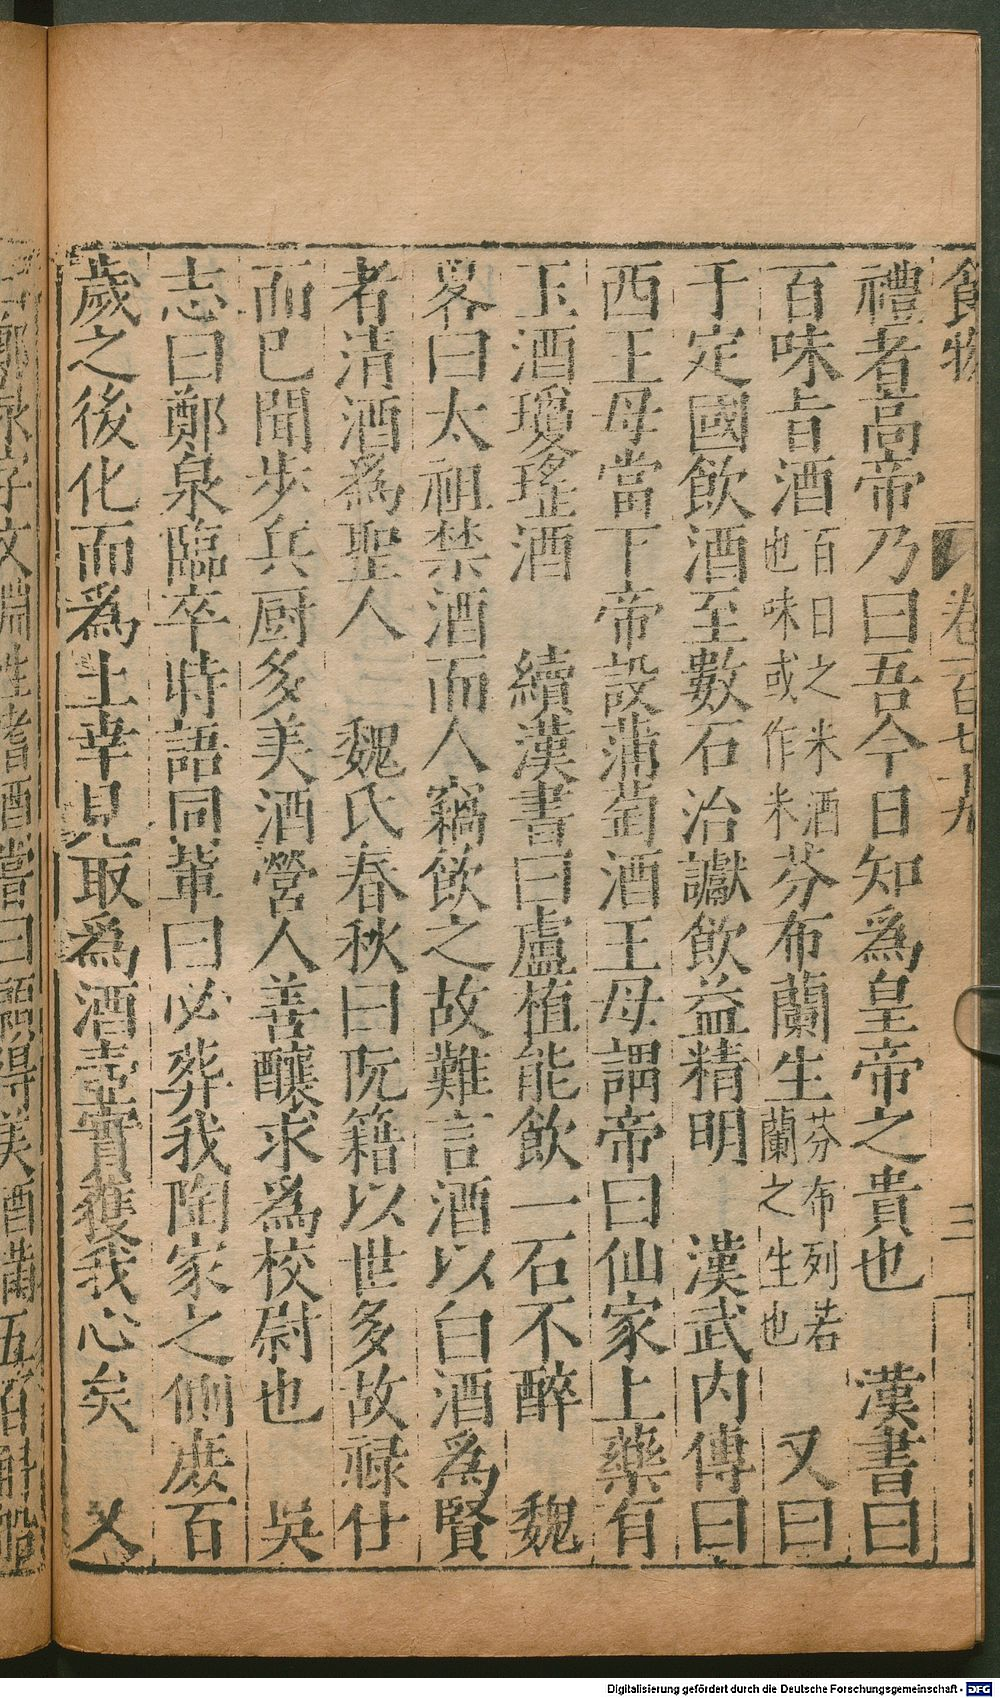 食物　卷一百七十九　三
禮者高帝乃曰吾今日知爲皇帝之貴也　漢書曰
百味旨酒百日之米酒也味或作米芬布蘭生芬布列若蘭之生也　又曰
于定國飲酒至數石治讞飲益精明　漢武内傳曰
西王母當下帝設蒲萄酒王母謂帝曰仙家上藥有
玉酒瓊瑤酒　續漢書曰盧植能飲一石不醉　魏
畧曰太祖禁酒而人竊飲之故難言酒以白酒爲賢
者清酒爲聖人　魏氏春秋曰阮籍以世多故禄仕
而已聞步兵厨多美酒營人善釀求爲校尉也　吳
志曰鄭泉臨卒時語同軰曰必葬我陶家之側庶百
歲之後化而爲土幸見取爲酒壺實獲我心矣　又
曰鄭泉字文淵性嗜酒嘗曰願得美酒滿五百斛船
Digitalisierung gefördert durch die Deutsche Forschungsgemeinschaft - DFG